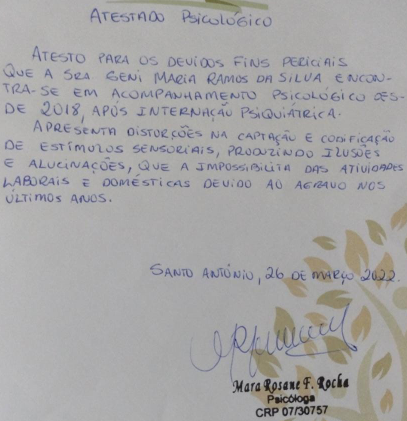 ATESTADO PSICOLÓGICO
ATESTO PARA OS DEVIDOS FINS PERICIAIS
QUE A SRA. GENI MARIA RAMOS DA SILVA ENCON-
TRA-SE EM ACOMPANHAMENTO PSICOLÓGICO DES-
DE 2018, APÓS INTERNAÇÃO PSIQUIÁTRICA.
APRESENTA DISTORÇÕES NA CAPTAÇÃO E CODIFICAÇÃO
DE ESTÍMULOS SENSORIAIS, PRODUZINDO ILUSÕES
E ALUCINAÇÕES, QUE A IMPOSSIBILITA DAS ATIVIDADES
LABORAIS E DOMÉSTICAS DEVIDO AO AGRAVO NOS
ÚLTIMOS ANOS.
SANTO ANTÔNIO, 26 DE MARÇO 2022.
Mara Rosane F. Rocha
Psicóloga
CRP 07/30757